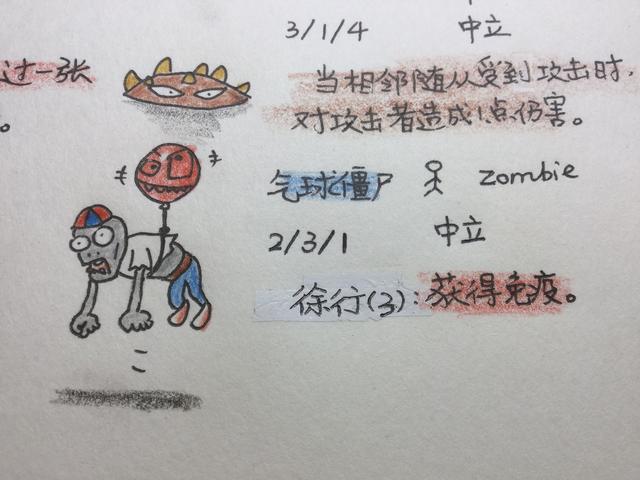 3/1/4 中立
过一张
。
当相邻随从受到攻击时，
对攻击者造成1点伤害。
气球僵尸 zombie
2/3/1 中立
徐行(3)：获得免疫。